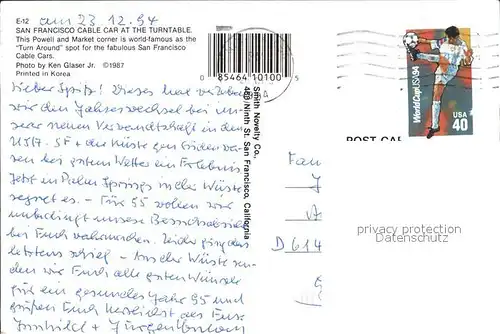 E-12
am 23.12.94
SAN FRANCISCO CABLE CAR AT THE TURNTABLE.
This Powell and Market corner is world-famous as the
"Turn Around" spot for the fabulous San Francisco
Cable Cars.
Photo by Ken Glaser Jr. ©1987
Printed in Korea
0 85464 10100 5
Smith Novelty Co.,
460 Ninth St. San Francisco, California
World Cup USA 94
USA
40
POST CA
Lieber Spitz! Dieses mal
wir den Jahreswechsel bei
neuen Verwandtschaft in den
USA - SF + der Küste gen Süden
bei gutem Wetter ein Erlebnis
Jetzt in Palm Springs in der Wüste
regnet es. - Für 95 wollen wir
unbedingt unsere
bei Euch wahrmachen. Leider ging das
letztens schief - Aus der Wüste sen-
den wir Euch alle guten Wünsche
für ein gesundes Jahr 95 und
grüßen Euch herzlichst als Eure
+ Jürgen
Fam
J
A
D 614
privacy protection
Datenschutz